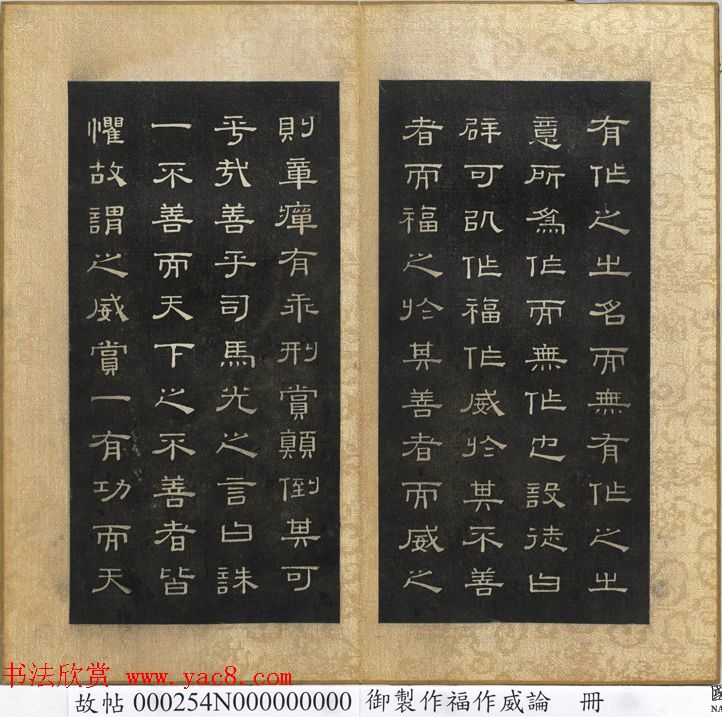 有作之之名而無有作之之
意所為作而無作也設徒曰
辟可以作福作威於其不善
者而福之於其善者而威之
則章癉有乖刑賞顛倒其可
乎哉善乎司馬光之言曰誅
一不善而天下之不善者皆
懼故謂之威賞一有功而天
书法欣赏 www.yac8.com
故帖 000254N000000000 御製作福作威論 冊